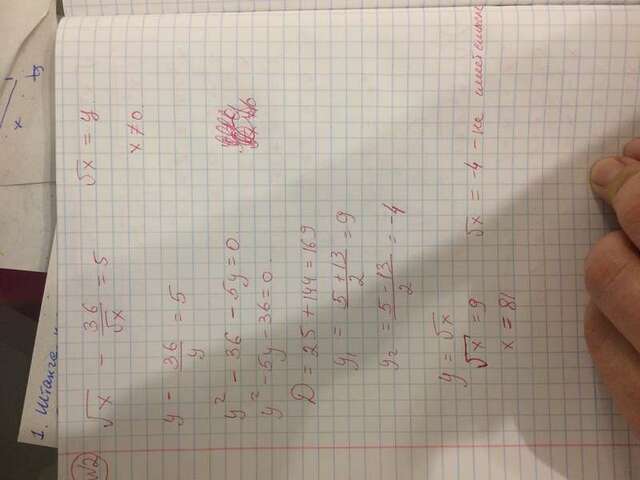 1. Штанге
x
№2
√x - 36/√x = 5
√x = y
x ≠ 0.
y - 36/y = 5
y² - 36 - 5y = 0.
y² - 5y - 36 = 0.
D = 25 + 144 = 169
y₁ = (5 + 13)/2 = 9
y₂ = (5 - 13)/2 = -4
y = √x
√x = 9
√x = -4 - не имеет смысла
x = 81